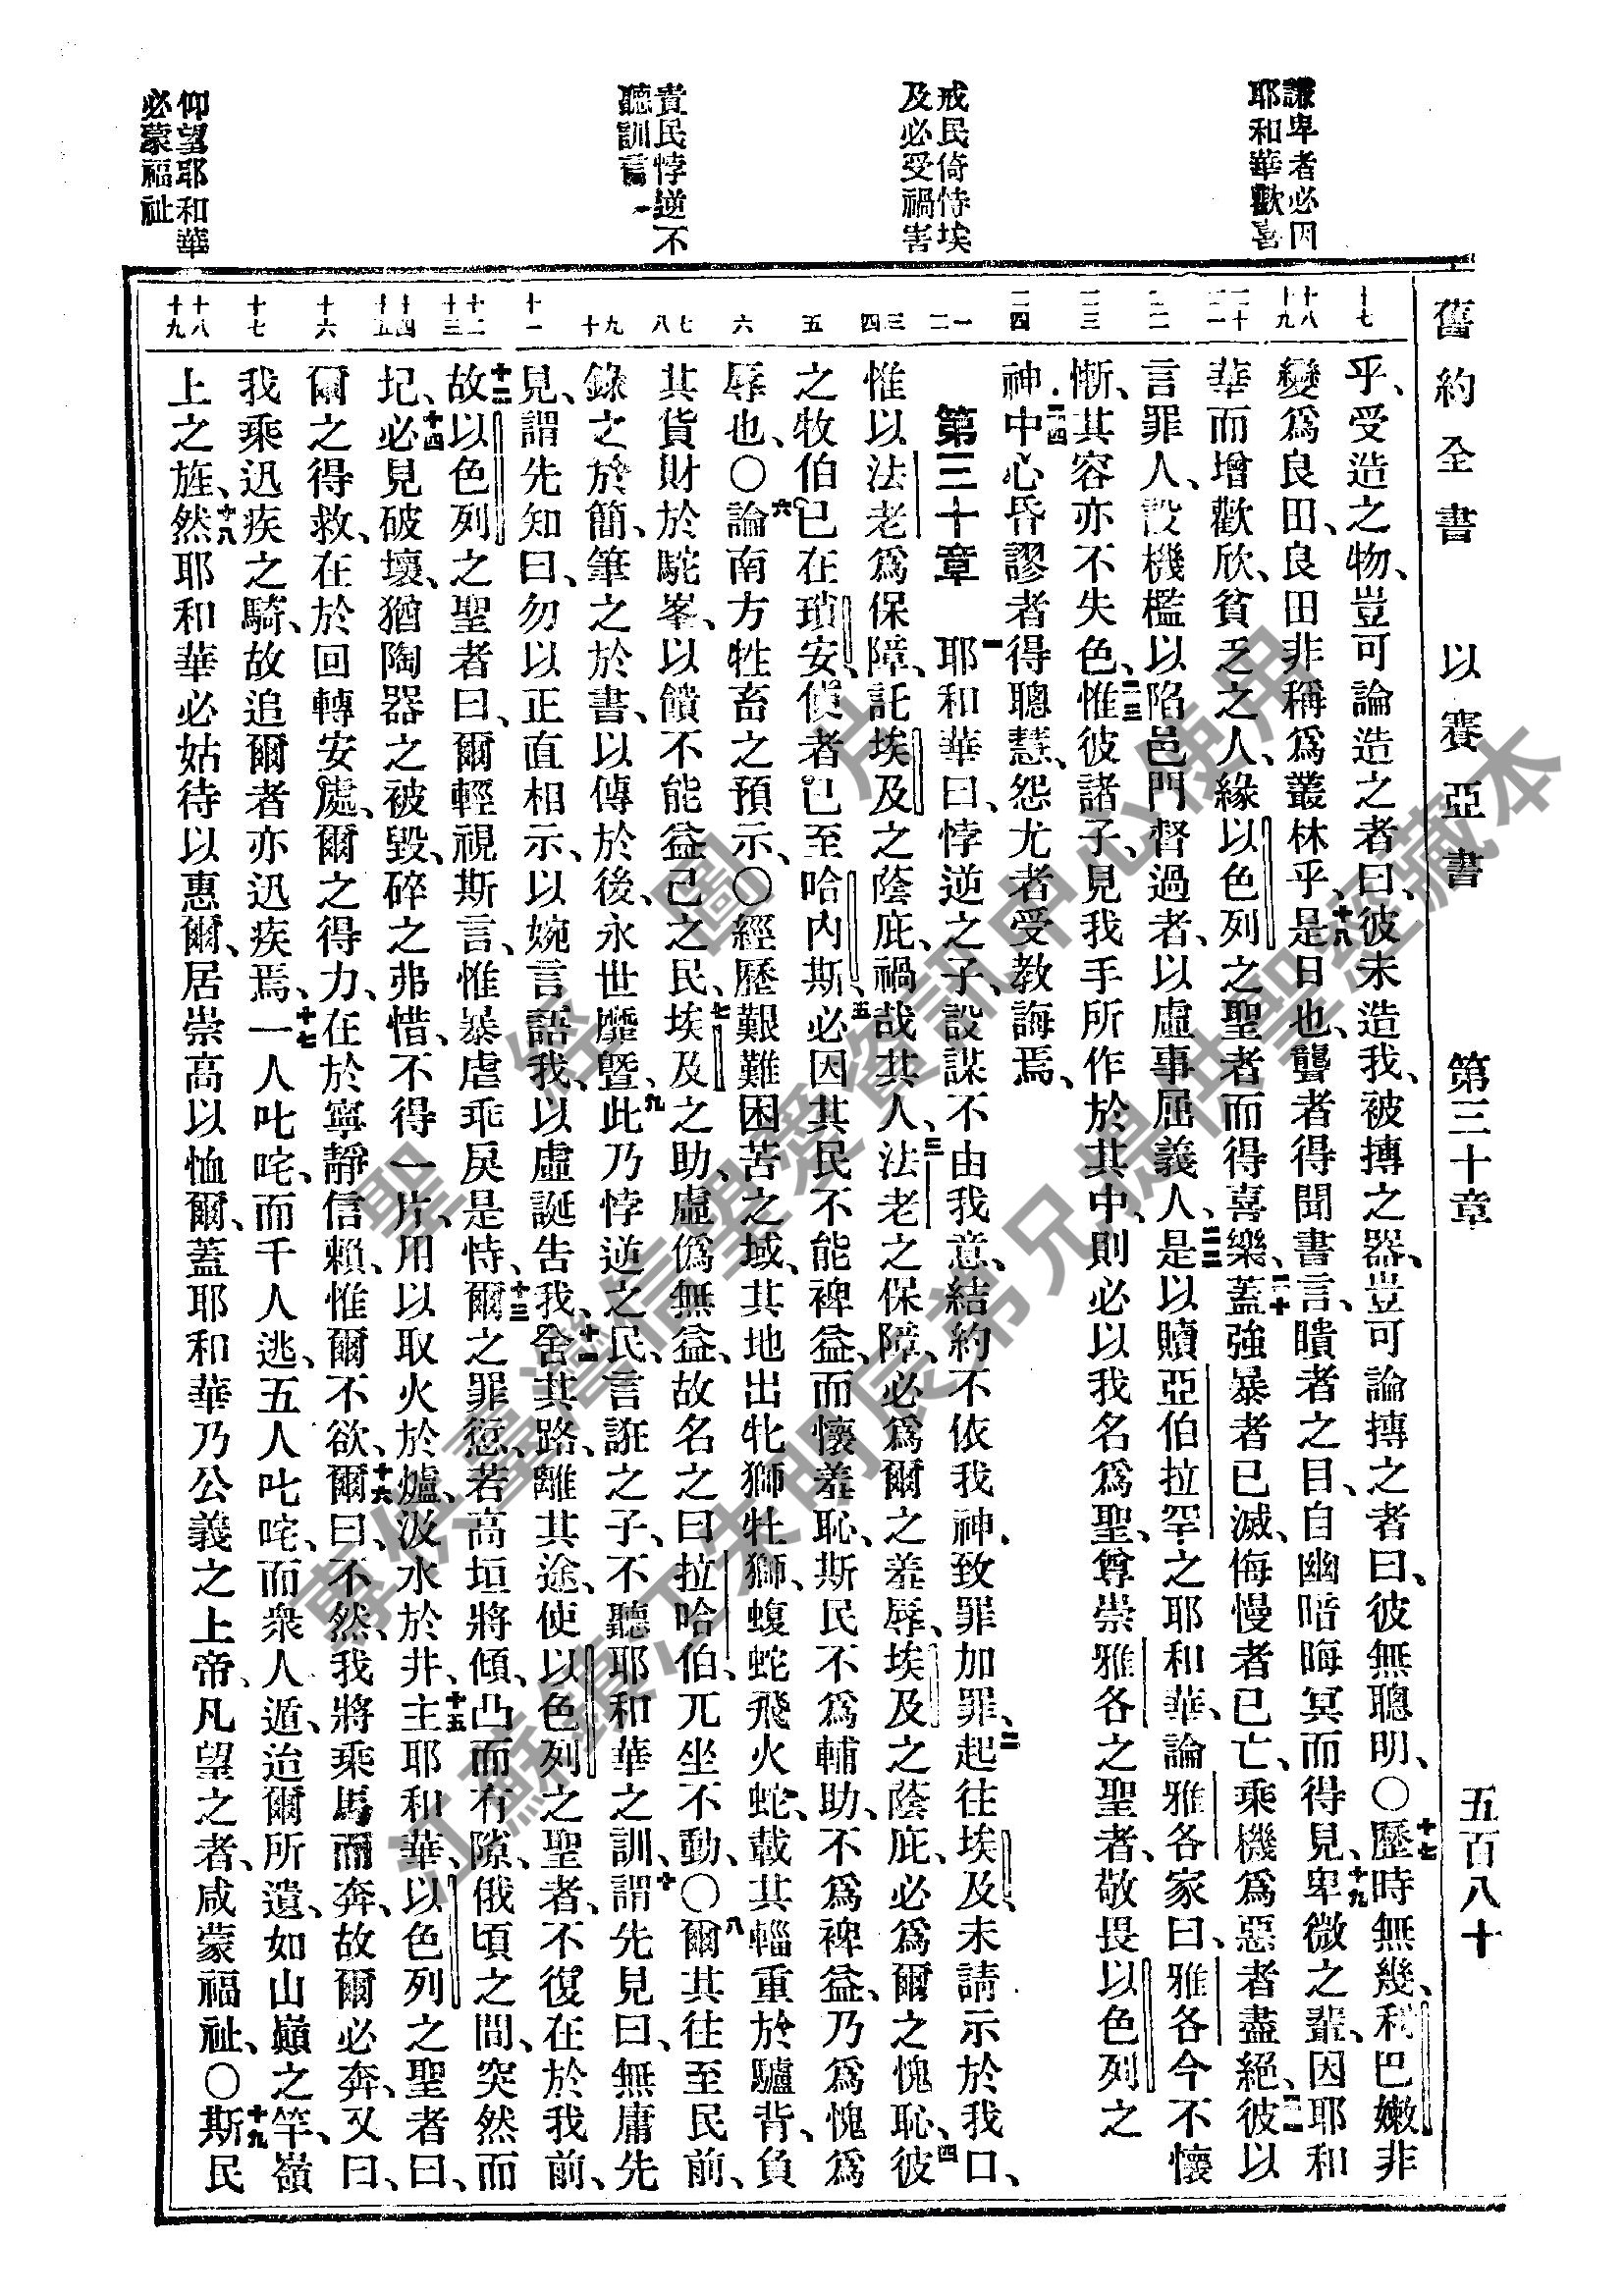 舊約全書 以賽亞書 第三十章 五百八十
謙卑者必因
耶和華歡喜
戒民倚恃埃
及必受禍害
責民悖逆不
聽訓言
仰望耶和華
必蒙福祉
十七
十八
十九
二十
二一
二二
二三
二四
一
二
三
四
五
六
七
八
九
十
十一
十二
十三
十四
十五
十六
十七
十八
十九
乎、受造之物、豈可論造之者曰、彼未造我、被摶之器、豈可論摶之者曰、彼無聰明、○十七歷時無幾、利巴嫩非
變爲良田、良田非稱爲叢林乎、十八是日也、聾者得聞書言、瞶者之目、自幽暗晦冥而得見、十九卑微之輩、因耶和
華而增歡欣、貧乏之人、緣以色列之聖者而得喜樂、二十蓋強暴者已滅、侮慢者已亡、乘機爲惡者盡絕、二一彼以
言罪人、設機檻以陷邑門督過者、以虛事屈義人、二二是以贖亞伯拉罕之耶和華、論雅各家曰、雅各今不懷
慚、其容亦不失色、二三惟彼諸子、見我手所作於其中、則必以我名爲聖、尊崇雅各之聖者、敬畏以色列之
神、二四中心昏謬者得聰慧、怨尤者受教誨焉、
第三十章 一耶和華曰、悖逆之子、設謀不由我意、結約不依我神、致罪加罪、二起往埃及、未請示於我口、
惟以法老爲保障、託埃及之蔭庇、禍哉其人、三法老之保障、必爲爾之羞辱、埃及之蔭庇、必爲爾之愧恥、四彼
之牧伯已在瑣安、使者已至哈內斯、五必因其民不能裨益、而懷羞恥、斯民不爲輔助、不爲裨益、乃爲愧爲
辱也、○六論南方牲畜之預示、○經歷艱難困苦之域、其地出牝獅牡獅、蝮蛇飛火蛇、載其輜重於驢背、負
其貨財於駝峯、以饋不能益己之民、七埃及之助、虛僞無益、故名之曰拉哈伯、兀坐不動、○八爾其往至民前、
錄之於簡、筆之於書、以傳於後、永世靡曁、九此乃悖逆之民、言誑之子、不聽耶和華之訓、十謂先見曰、無庸先
見、謂先知曰、勿以正直相示、以婉言語我、以虛誕告我、十一舍其路、離其途、使以色列之聖者、不復在於我前、
十二故以色列之聖者曰、爾輕視斯言、惟暴虐乖戾是恃、十三爾之罪愆、若高垣將傾、凸而有隙、俄頃之間、突然而
圮、十四必見破壞、猶陶器之被毀、碎之弗惜、不得一片、用以取火於爐、汲水於井、十五主耶和華、以色列之聖者曰、
爾之得救、在於回轉安處、爾之得力、在於寧靜信賴、惟爾不欲、十六爾曰、不然、我將乘馬而奔、故爾必奔、又曰、
我乘迅疾之騎、故追爾者亦迅疾焉、十七一人叱咤、而千人逃、五人叱咤、而衆人遁、迨爾所遺、如山巔之竿、嶺
上之旌、十八然耶和華必姑待以惠爾、居崇高以恤爾、蓋耶和華乃公義之上帝、凡望之者、咸蒙福祉、○十九斯民
聖經圖片
專供臺灣信望愛資訊中心使用
江蘇鎮江朱明辰弟兄提供聖經藏本